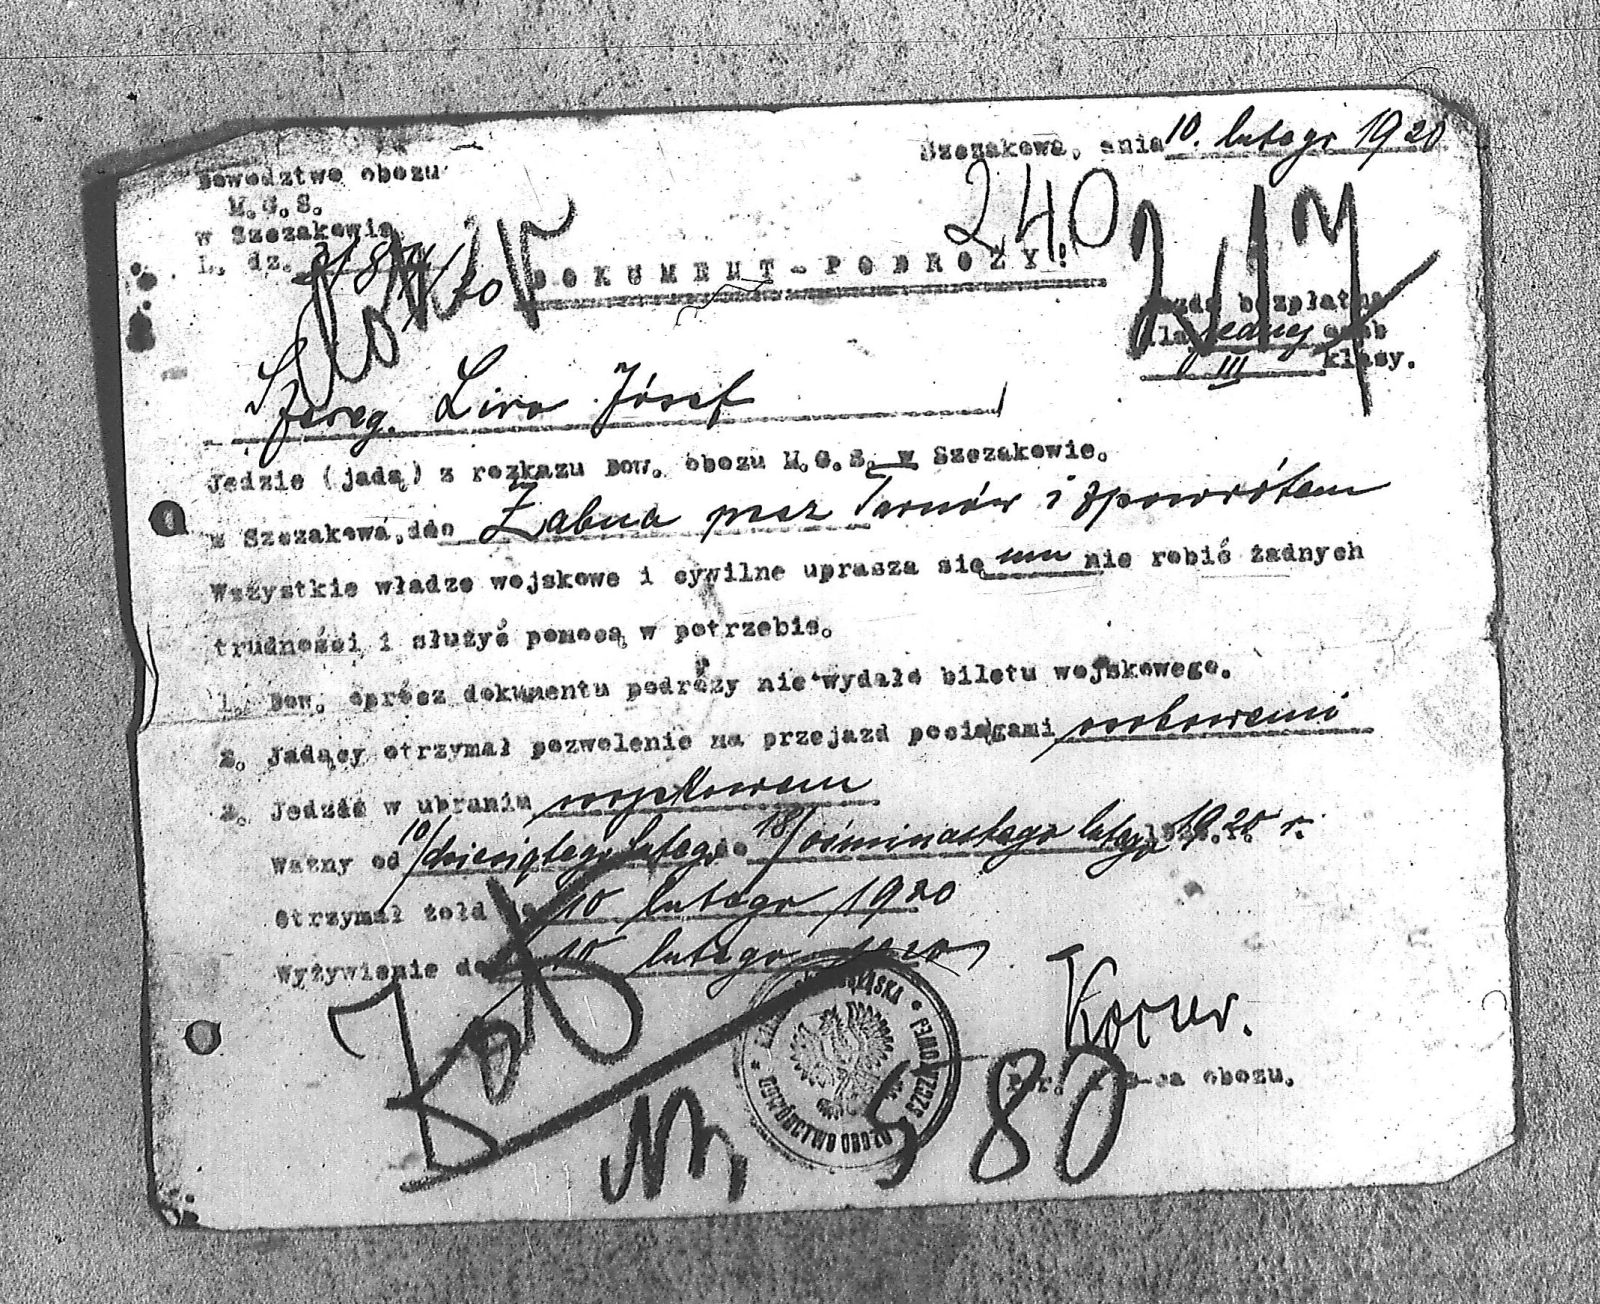 Szczakowa, dnia 10. lutego 1920
Dowództwo obozu
M.G.S.
w Szczakowie
L. dz.
240
DOKUMENT-PODROŻY!
Jazda bezpłatna
dla jednej osob
III klasy.
Szereg. Lira Józef
Jedzie (jadą) z rozkazu Dow. obozu M.G.S. w Szczakowie.
z Szczakowa, do Żabna przez Tarnów i zpowrótem
Wszystkie władze wojskowe i cywilne uprasza się mu nie robić żadnych
trudności i służyć pomocą w potrzebie.
1. Dow. oprócz dokumentu podróży nie wydało biletu wojskowego.
2. Jadący otrzymał pozwolenie na przejazd pociągami osobowemi
3. Jedzie w ubraniu wojskowem
Ważny od 10/dziesiątego lutego do 18/ośminastego lutego 1920 r.
Otrzymał żołd do 10 lutego 1920
Wyżywienie do 10 lutego 1920
DOWÓDCTWO OBOZU
Nr. 580
obozu.